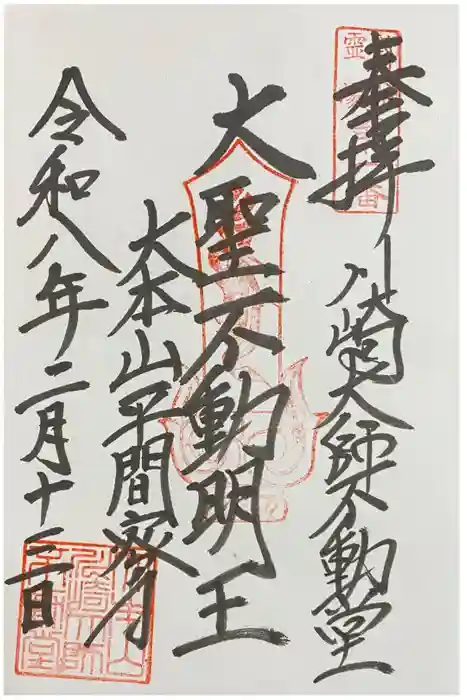 奉拝 川崎大師不動堂
大聖不動明王
大本山平間寺
令和八年二月十三日